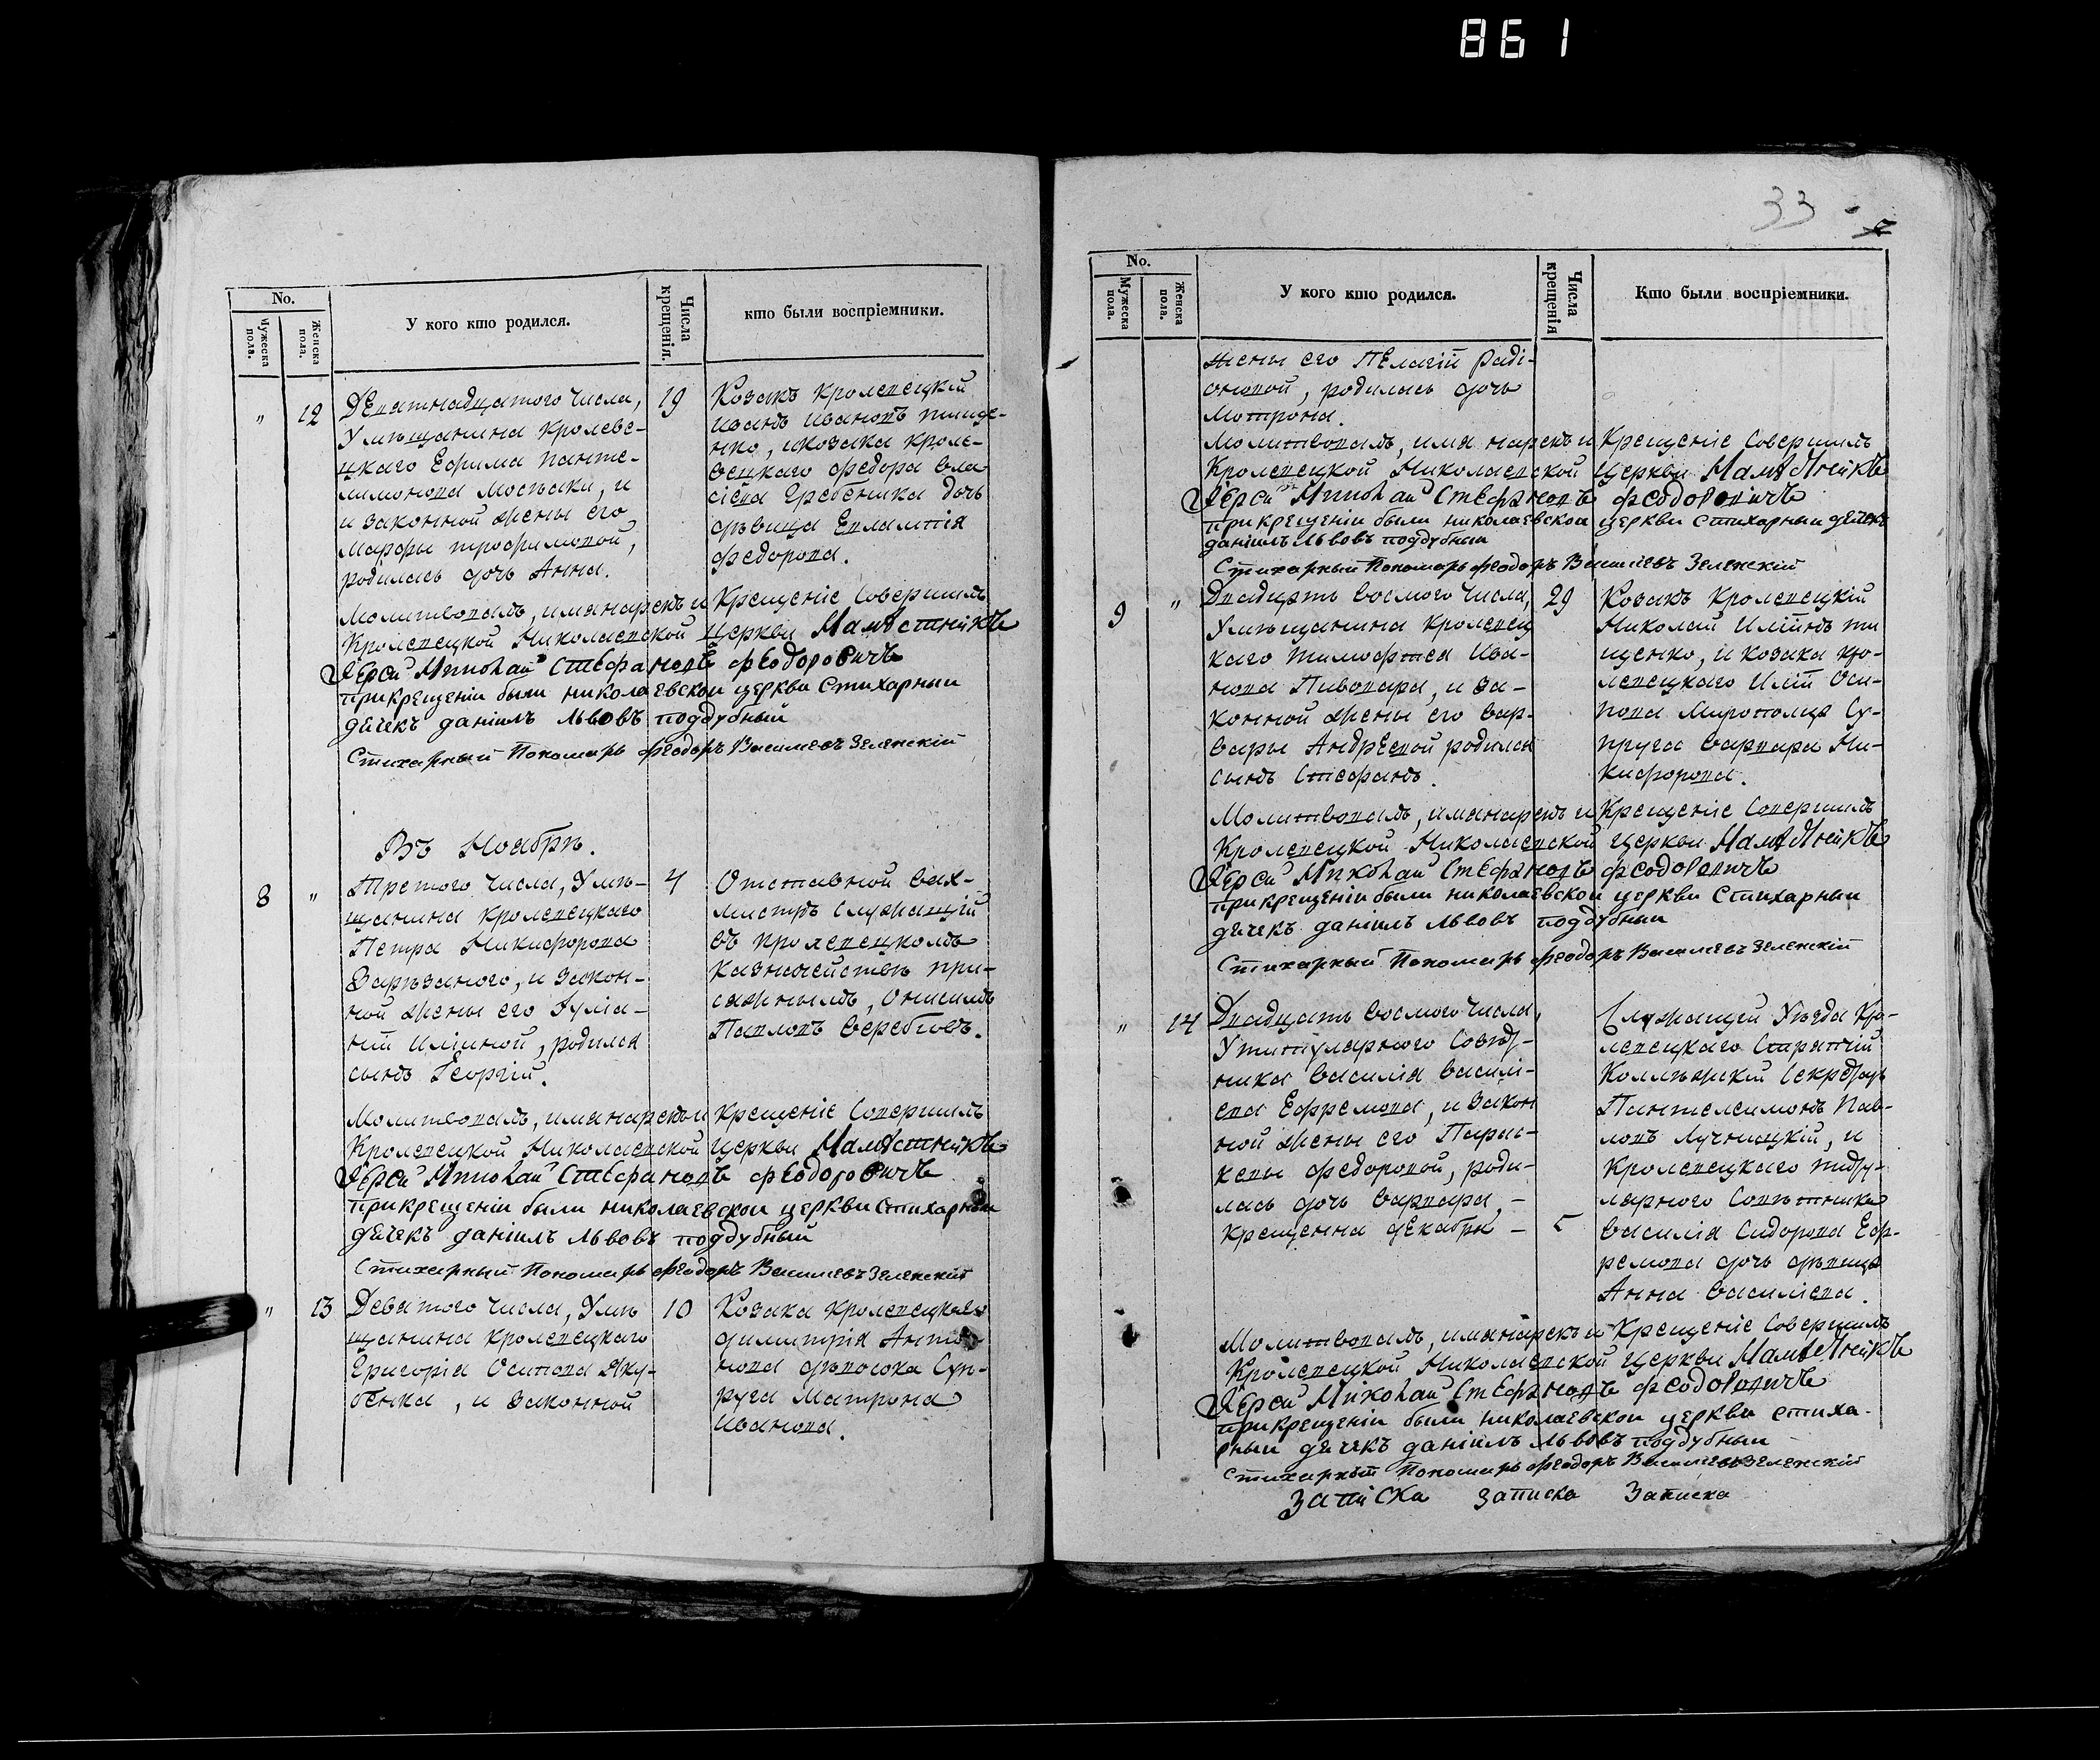 861
33
No.
Мужеска пола.
Женска пола.
У кого кто родился.
Числа крещенія.
кто были воспріемники.
„ 12
Девятнадцатого числа,
У мѣщанина Кролеве-
цкаго Ефима Панте-
лимонова Мосъпака, и
и законной жены его
Марфы Трофимовой,
родилась дочь Анна.
19
Козакъ Кролевецкій
Иванъ Ивановъ Тище-
нко, и козака Кроле-
вецкаго Федора Вла
сіева Гребеника дочь
дѣвица Евлампія
Федорова.
Молитвовалъ, имя нарекъ и Крещеніе Совершилъ
Кролевецкой Николаевской Церкви Намѣстникъ
Іерей Николай Стефановъ Феодоровичъ
при крещеніи были николаевской церкви Стихарный
дячекъ даніилъ Львовъ поддубный
Стихарный Пономарь Феодоръ Васильевъ Зеленскій
Въ Ноябрѣ.
8 „
Третого числа, У мѣ-
щанина Кролевецкаго
Петра Никифорова
Зарѣзаного, и закон-
ной жены его Іуліа-
ніи Иліиной, родился
сынъ Георгій.
4
Отставной Вах-
мистръ Служащій
въ Кролевецкомъ
Казначействѣ при-
сяжнымъ, Онисимъ
Павловъ Веребіовъ.
Молитвовалъ, имя нарекъ и Крещеніе Совершилъ
Кролевецкой Николаевской Церкви Намѣстникъ
Іерей Николай Стефановъ Феодоровичъ
при крещеніи были николаевской церкви Стихарный
дячекъ даніилъ Львовъ поддубный
Стихарный Пономарь Феодоръ Васильевъ Зеленскій
„ 13
Девятого числа, У мѣ
щанина Кролевецкаго
Григорія Осипова Яку-
бенка, и законной
10
Козака Кролевецкаго
Димитрія Анто-
нова Дѣволока Суп-
руга Матрона
Иванова.
No.
Мужеска пола.
Женска пола.
У кого кто родился.
Числа крещенія
Кто были воспріемники.
жены его Пелагіи Раді-
оновой, родилась дочь
Мотрона.
Молитвовалъ, имя нарекъ и Крещеніе Совершилъ
Кролевецкой Николаевской Церкви Намѣстникъ
Іерей Николай Стефановъ Феодоровичъ
при крещеніи были николаевской церкви Стихарный дячекъ
даніилъ Львовъ поддубный
Стихарный Пономарь Феодоръ Васильевъ Зеленскій
9 „
Двадцять восмого числа,
У мѣщанина Кролевец
каго Тимофтея Ива-
нова Пивовара, и за-
конной жены его Вар-
вары Андреевой родился
сынъ Стефанъ.
29
Козакъ Кролевецкій
Николай Иліинъ Ти
щенко, и козака Кро-
левецкаго Иліи Оси-
пова Миропольца Су-
пруга Варвара Ни-
кифорова.
Молитвовалъ, имя нарекъ и Крещеніе Совершилъ
Кролевецкой Николаевской Церкви Намѣстникъ
Іерей Николай Стефановъ Феодоровичъ
при крещеніи были николаевской церкви Стихарный
дячекъ даніилъ Львовъ поддубный
Стихарный Пономарь Феодоръ Васильевъ Зеленскій
„ 14
Двадцять восмого числа,
У титулярного Совѣт-
ника Василія Василі-
ева Ефремова, и закон
ной жены его Парас-
кевы Федоровой, роди-
лась дочь Варвара, -
Крещенна декабря -
5
Служащій Уѣзда Кро-
левецкаго Стряпчій
Коллѣжскій Секретарь
Пантелеимонъ Пав-
ловъ Лучницкій, и
Кролевецкаго титу-
лярного Совѣтника
Василія Сидорова Еф-
ремова дочь дѣвица
Анна Василіева.
Молитвовалъ, имя нарекъ и Крещеніе Совершилъ
Кролевецкой Николаевской Церкви Намѣстникъ
Іерей Николай Стефановъ Феодоровичъ
при крещеніи были николаевской церкви стиха-
рный дячекъ даніилъ Львовъ поддубный
Стихарный Пономарь Феодоръ Васильевъ Зеленскій
Записка Записка Записка